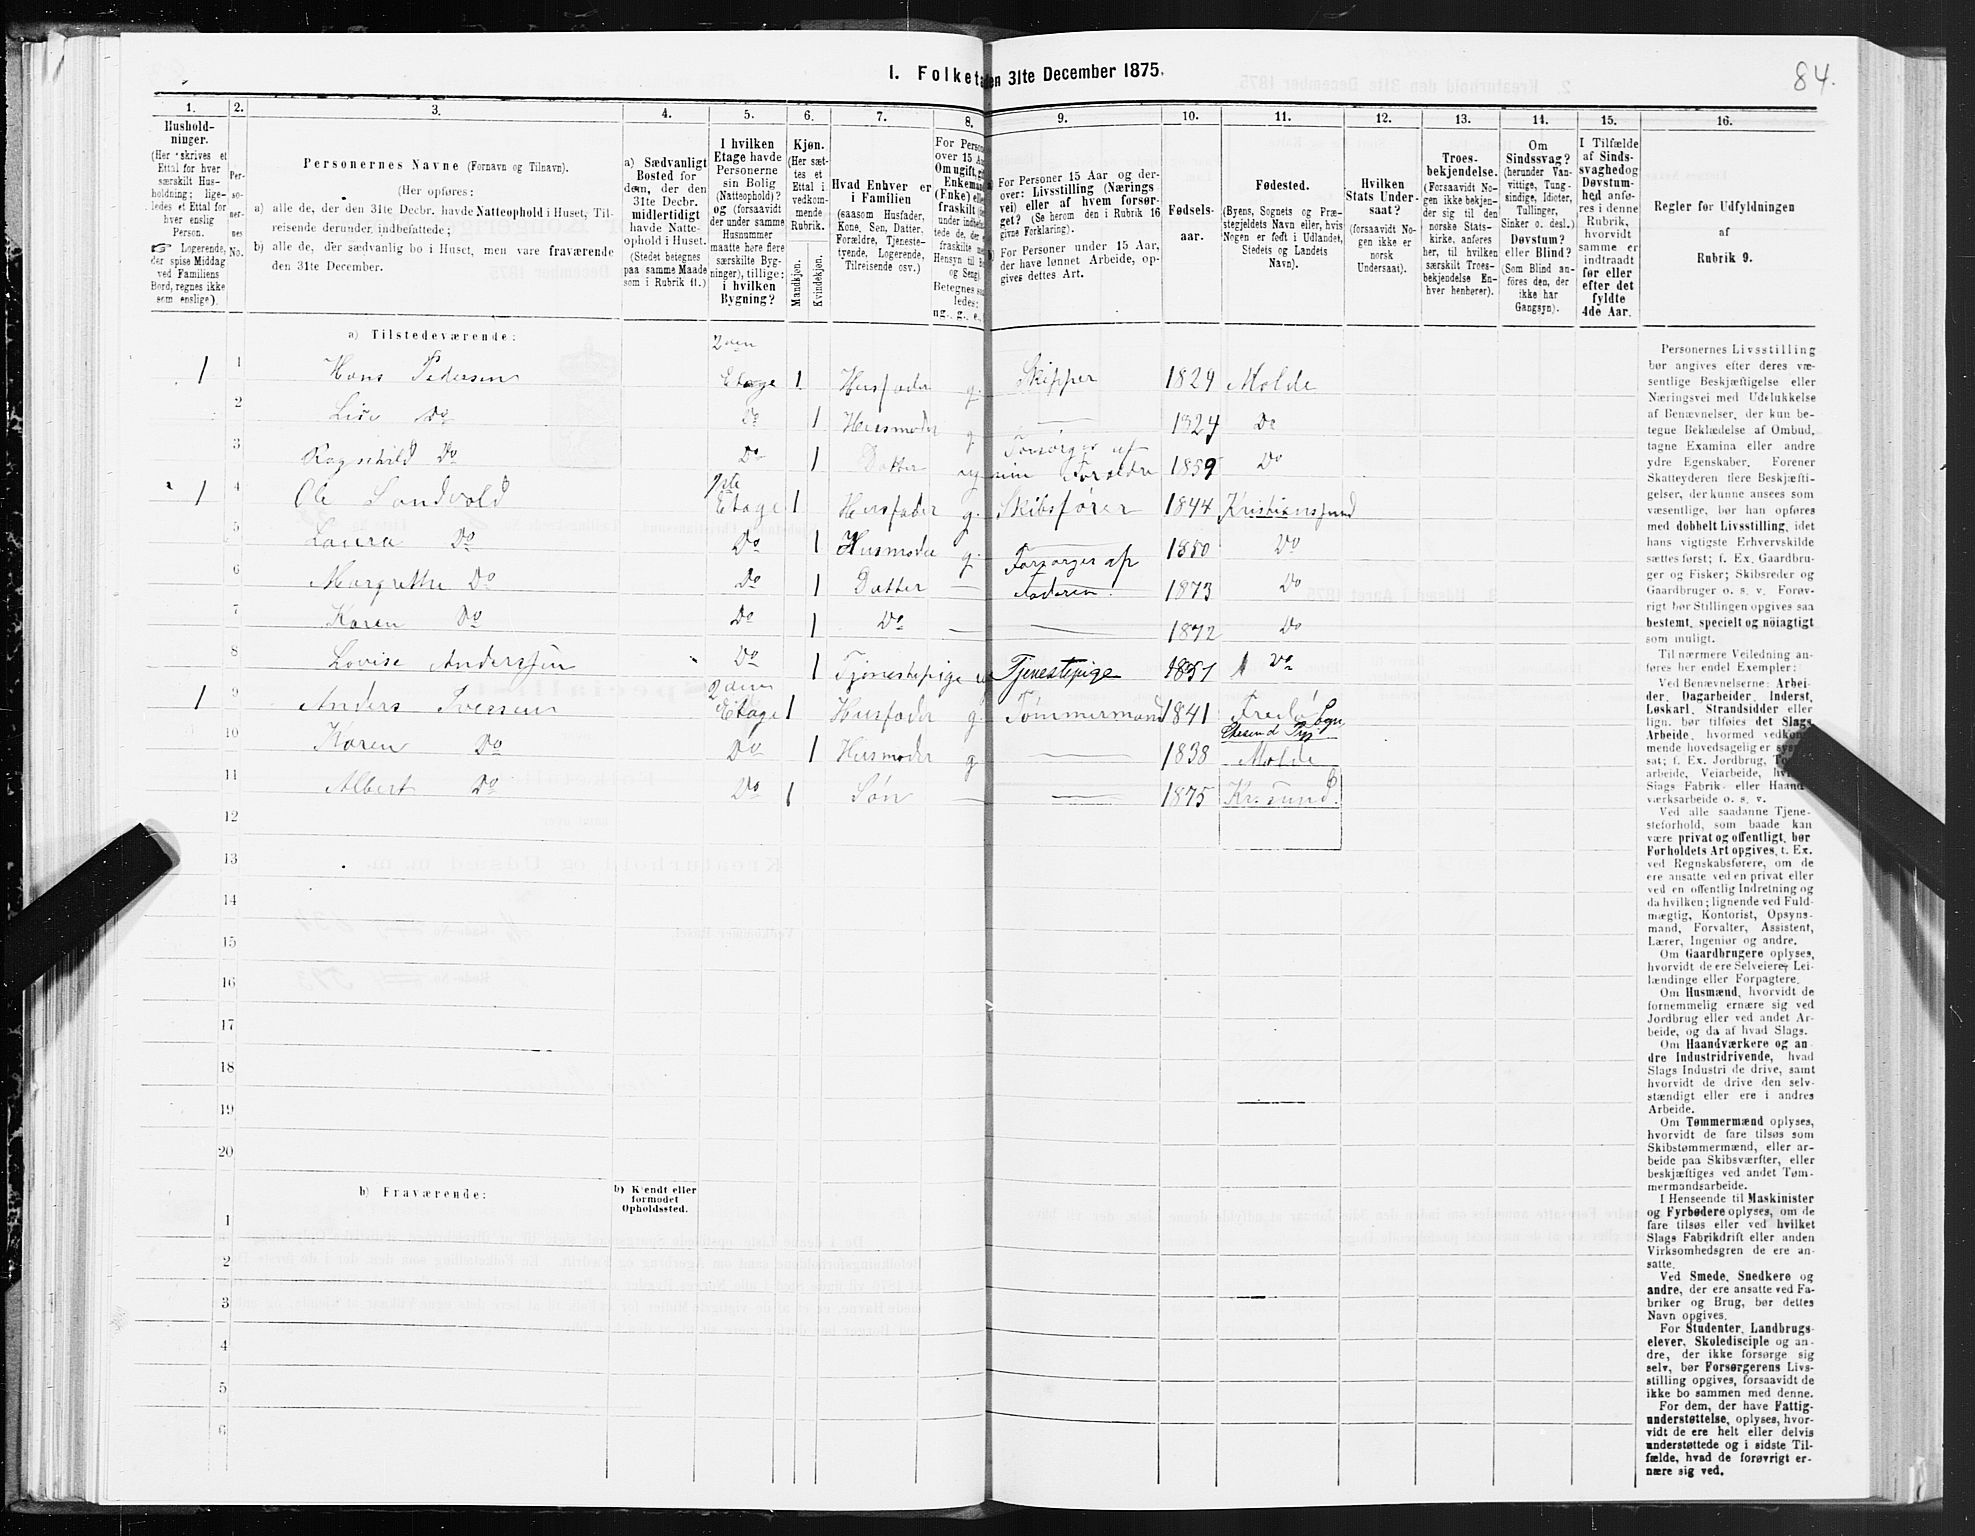 84.
I. Folketæ en 31te December 1875.
1. 2. 3. 4. 5. 6. 7. 8. 9. 10. 11. 12. 13. 14. 15. 16.
Hushold-
ninger.
(Her skrives et
Ettal for hver
særskilt Hus-
holdning; lige-
ledes et Ettal for
hver enslig
Person.
☞ Logerende,
der spise Middag
ved Familiens
Bord, regnes ikke
som enslige).
Per-
so-
ner-
nes
No.
Personernes Navne (Fornavn og Tilnavn).
(Her opføres:
a) alle de, der den 31te Decbr. havde Natteophold i Huset, Til-
reisende derunder indbefattede;
b) alle de, der sædvanlig bo i Huset, men vare fraværende
den 31te December.
a) Sædvanligt
Bosted for
dem, der den
31te Decbr.
midlertidigt
havde Natte-
ophold i Huset.
(Stedet betegnes
paa samme Maade
som i Rubrik 11.)
I hvilken
Etage havde
Personerne
sin Bolig
(Natteophold)?
og (forsaavidt
der under samme
Husnummer
maatte høre flere
særskilte Byg-
ninger), tillige:
i hvilken
Bygning?
Kjøn.
(Her sæt-
tes et
Ettal i
vedkom-
mende
Rubrik.
Mandkjøn.
Kvindekjøn.
Hvad Enhver er
i Familien
(saasom Husfader,
Kone, Søn, Datter,
Forældre, Tjeneste-
tyende, Logerende,
Tilreisende osv.)
For Person
over 15 Aa
Om ugift, g
Enkeman
(Enke) ell
fraskilt
under indbe
tede de, der
fraskilte me
Hensyn til B
og Seng)
Betegnes saa
ledes:
ug., g., e.,
a) For Personer 15 Aar og der-
over: Livsstilling (Nærings
vei) eller af hvem forsør-
get? (Se herom den i Rubrik 16
givne Forklaring).
b) For Personer under 15 Aar,
der have lønnet Arbeide, op-
gives dettes Art.
Fødsels-
aar.
Fødested.
(Byens, Sognets og Præ-
stegjeldets Navn eller, hvis
Nogen er født i Udlandet,
Stedets og Landets
Navn).
Hvilken
Stats Under-
saat?
(forsaavidt No-
gen ikke er
norsk
Undersaat).
Troes-
bekjendelse.
(Forsaavidt No-
gen ikke bekjen-
der sig til den
norske Stats-
kirke, anføres
her, til hvilken
særskilt Troes-
bekjendelse En-
hver henhører).
Om
Sindssvag?
(herunder Van-
vittige, Tung-
sindige, Idioter,
Tullinger,
Sinker o. desl.)
Døvstum?
eller Blind?
(Som Blind an-
føres den, der
ikke har
Gangsyn).
I Tilfælde
af Sinds-
svaghedog
Døvstum-
hed anfø-
res i denne
Rubrik,
hvorvidt
samme er
indtraadt
før eller
efter det
fyldte
4de Aar.
Regler for Udfyldningen
af
Rubrik 9.
a) Tilstedeværende:
1 1 Hans Pedersen 2den Etage 1 Husfader g. Skipper 1829 Molde
2 Lise Do Do 1 Husmoder g — 1824 Do
3 Ragnhild Do Do 1 Datter ug Forsørges af sine Forældre 1859 Do
1 4 Ole Sandvold 1ste Etage 1 Husfader g. Skibsfører 1844 Kristianssund
5 Laura Do Do 1 Husmoder g. 1850 Do
6 Margrethe Do Do 1 Datter — Forsørges af Faderen. 1873 Do
7 Karen Do Do 1 Do — — 1872 Do
8 Lovise Anderssen Do 1 Tjenestepige Tjenestepige 1851 Do
1 9 Anders Iverssen 2den Etage 1 Husfader g. Tømmermand 1841 Fredø Sogn
10 Karen Do Do 1 Husmoder g — 1838 Molde
11 Albert Do Do 1 Søn — — 1875 Kr.sund.
12
13
14
15
16
17
18
19
20
b) Fraværende:
b) Kjendt eller
formodet
Opholdssted.
1
2
3
4
5
6
Personernes Livsstilling
bør angives efter deres væ-
sentlige Beskjæftigelse eller
Næringsvei med Udelukkelse
af Benævnelser, der kun be-
tegne Beklædelse af Ombud,
tagne Examina eller andre
ydre Egenskaber. Forener
Skatteyderen flere Beskjæfti-
gelser, der kunne ansees som
væsentlige, bør han opføres
med dobbelt Livsstilling, idet
hans vigtigste Erhvervskilde
sættes først; f. Ex. Gaardbru-
ger og Fisker; Skibsreder og
Gaardbruger o. s. v. Forøv-
rigt bør Stillingen opgives saa
bestemt, specielt og nöiagtigt
som muligt.
Til nærmere Veiledning an-
føres her endel Exempler:
Ved Benævnelserne: Arbei-
der, Dagarbeider, Inderst,
Løskarl, Strandsidder eller
lign. bør tilføies det Slags
Arbeide, hvormed vedkom-
mende hovedsagelig er
sat; f. Ex. Jordbrug,
arbeide, Veiarbeide,
Slags Fabrik- eller Haand-
værksarbeide o. s. v.
Ved alle saadanne Tjene-
steforhold, som baade kan
være privat og offentligt, bør
Forholdets Art opgives, f. Ex.
ved Regnskabsførere, om de
ere ansatte ved en privat eller
ved en offentlig Indretning og
da hvilken; lignende ved Fuld-
mægtig, Kontorist, Opsyns-
mand, Forvalter, Assistent,
Lærer, Ingeniør og andre.
Om Gaardbrugere oplyses,
hvorvidt de ere Selveiere, Lei-
lændinge eller Forpagtere.
Om Husmænd, hvorvidt de
fornemmelig ernære sig ved
Jordbrug eller ved andet Ar-
beide, og da af hvad Slags.
Om Haandværkere og an-
dre Industridrivende, hvad
Slags Industri de drive, samt
hvorvidt de drive den selv-
stændigt eller ere i andres
Arbeide.
Om Tømmermænd oplyses,
hvorvidt de fare tilsøs som
Skibstømmermænd, eller ar-
beide paa Skibsværfter, eller
beskjæftiges ved andet Tøm-
mermandsarbeide.
I Henseende til Maskinister
og Fyrbødere oplyses, om de
fare tilsøs eller ved hvilket
Slags Fabrikdrift eller anden
Virksomhedsgren de ere an-
satte.
Ved Smede, Snedkere og
andre, der ere ansatte ved Fa-
briker og Brug, bør dettes
Navn opgives.
For Studenter, Landbrugs-
elever, Skoledisciple og an-
dre, der ikke forsørge sig
selv, bør Forsørgerens Livs-
stilling opgives, forsaavidt de
ikke bo sammen med denne.
For dem, der have Fattig-
understøttelse, oplyses, hvor-
vidt de ere helt eller delvis
understøttede og i sidste Til-
fælde, hvad de forøvrigt er-
nære sig ved.